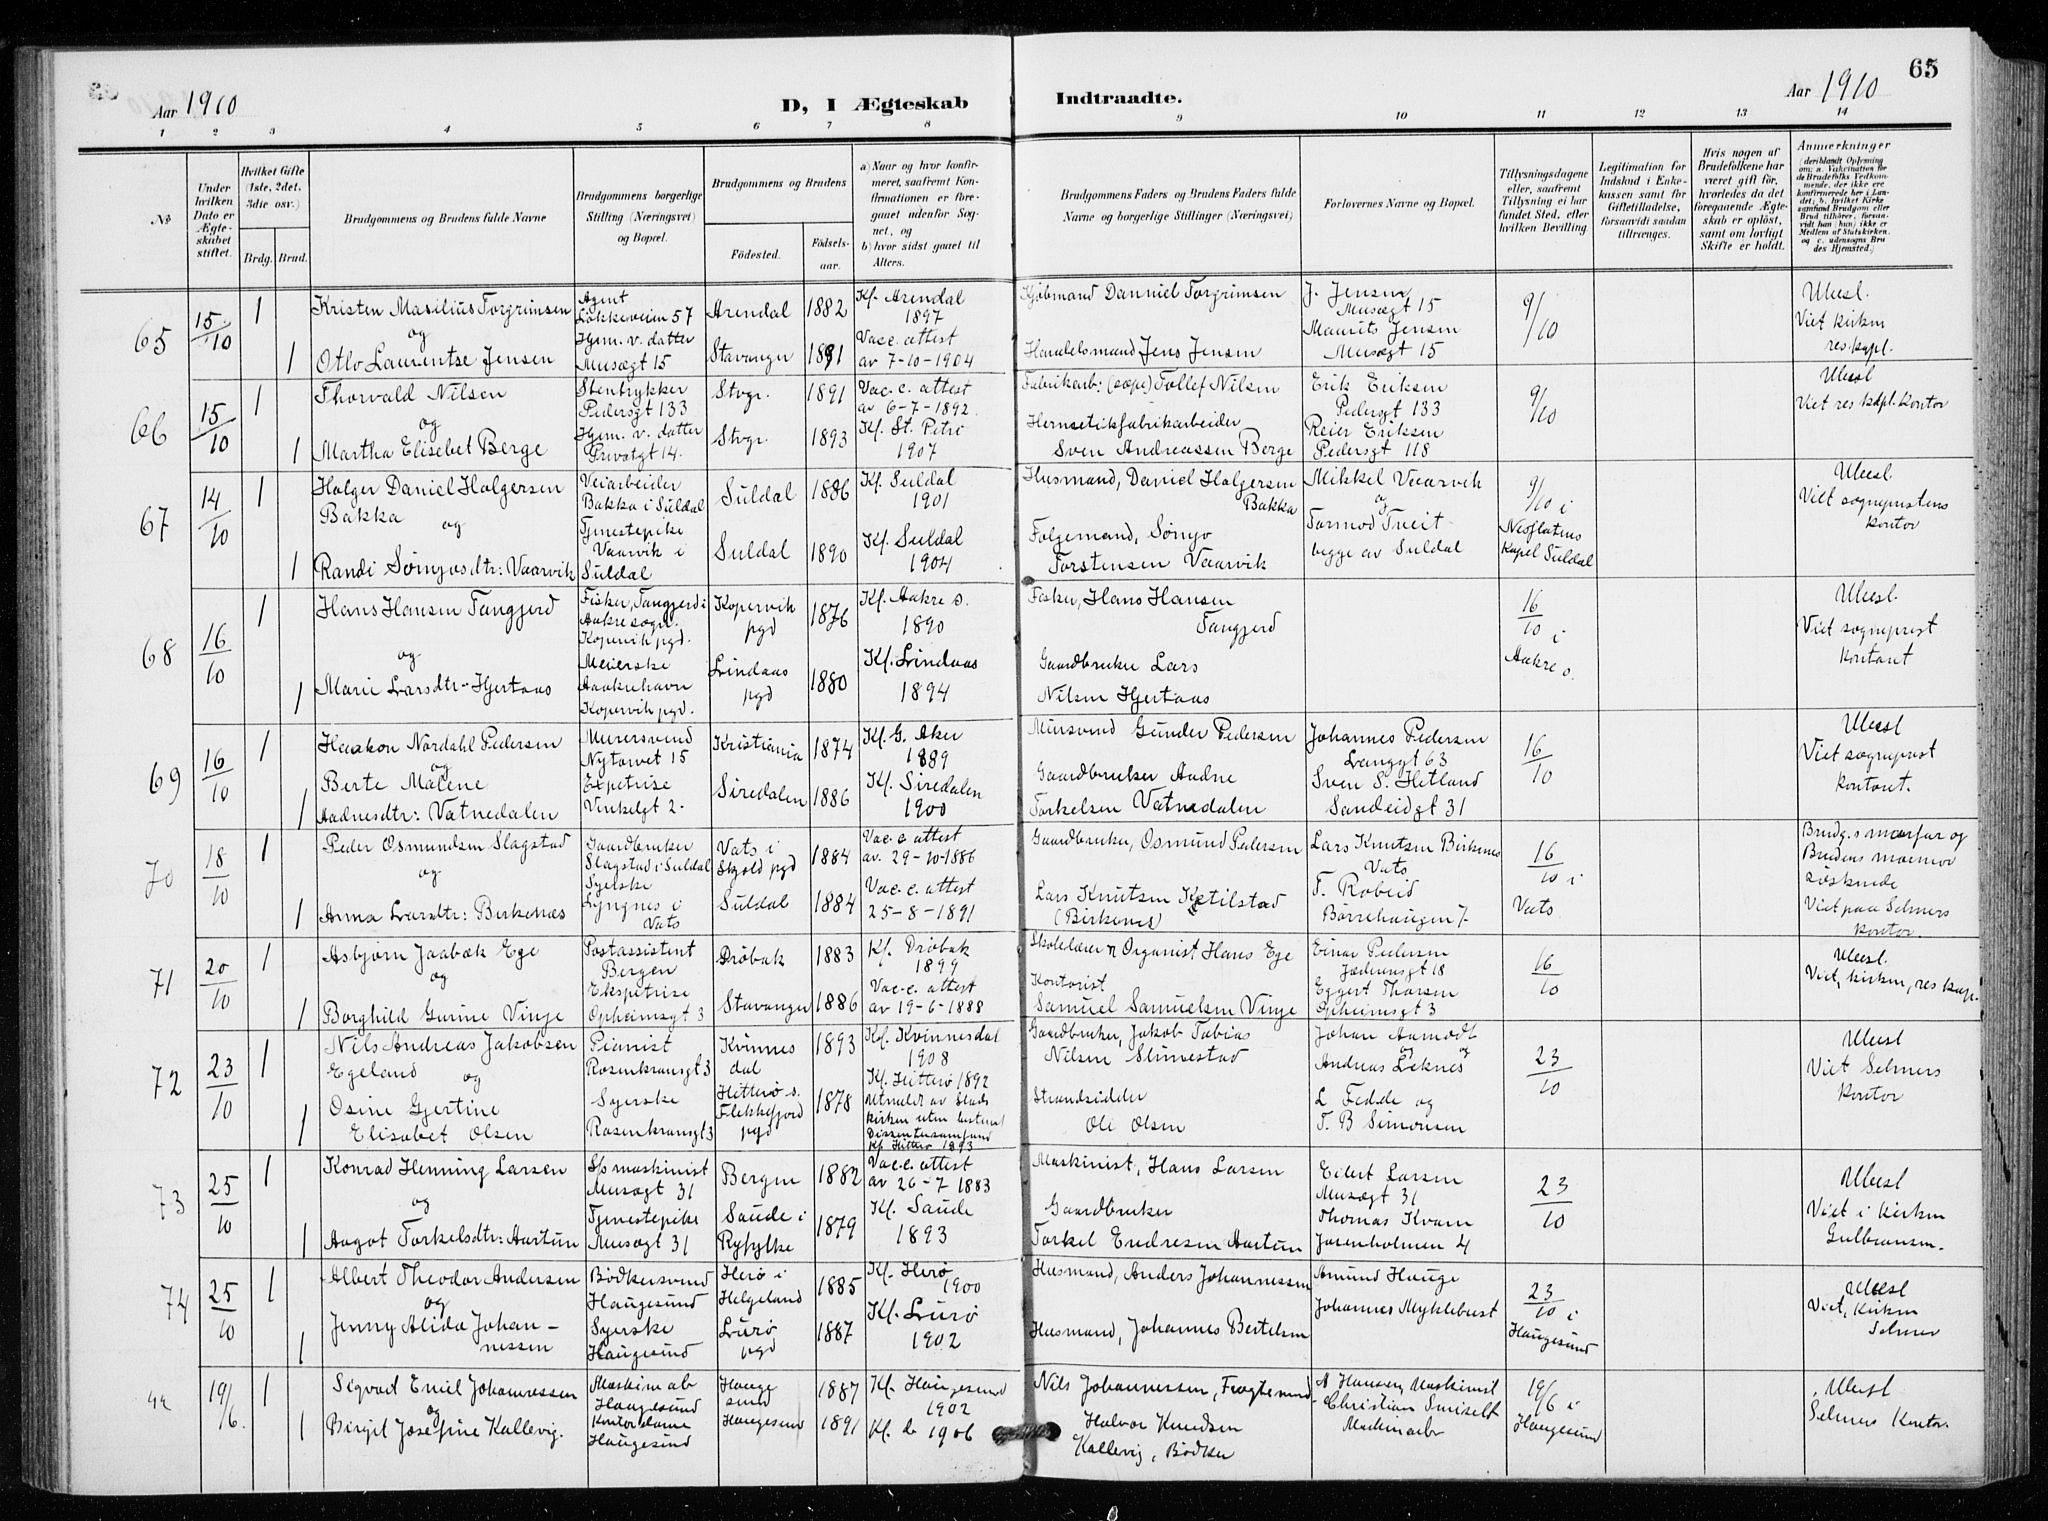 65
Aar 1910
D, I Ægteskab Indtraadte.
Aar 1910
1 2 3 4 5 6 7 8 9 10 11 12 13 14
No
Under hvilken Dato er Ægteskabet stiftet.
Hvilket Gifte (1ste, 2det, 3die osv.)
Brdg. Brud.
Brudgommens og Brudens fulde Navne
Brudgommens borgerlige Stilling (Næringsvei) og Bopæl.
Brudgommens og Brudens
Fødested.
Fødselsaar.
a) Naar og hvor konfirmeret, saafremt Konfirmationen er foregaaet udenfor Sognet, og
b) hvor sidst gaaet til Alters.
Brudgommens Faders og Brudens Faders fulde Navne og borgerlige Stillinger (Næringsvei)
Forlovernes Navne og Bopæl.
Tillysningsdagene eller, saafremt Tillysning ei har fundet Sted, efter hvilken Bevilling
Legitimation for Indskud i Enkekassen samt for Giftetilladelse, forsaavidt saadan tiltrænges.
Hvis nogen af Brudefolkene har været gift før, hvorledes da det foregaaende Ægteskab er opløst, samt om lovligt Skifte er holdt.
Anmerkninger
65 15/10 1 Kristen Masilius Torgrimsen Agent Løkkeveien 57 Arendal 1882 Kf. Arendal 1897 Kjøbmand Danniel Torgrimsen J. Jensen Musægt 15 9/10 Ubesl. Viet kirken res kapl.
og
1 Otto Laurentse Jensen Hjem. v. datter Musægt 15 Stavanger 1891 Vac. c. attest av 7-10-1904 Handelsmand Jens Jensen Maurits Jensen Musægt 15
66 15/10 1 Thorvald Nilsen Stentrykker Pedersgt 133 Stvgr. 1891 Vac. c. attest av 6-7-1892. Fabrikarb: Tollef Nilsen Erik Eriksen Pedersgt 133 9/10 Ubesl Viet res kapl. kontor
og
1 Martha Elisebet Berge Hjem. v. datter Privatgt 14. Stvgr. 1893 Kf. St. Petri 1907 Hermetikfabrikarbeider Sven Andreassen Berge Reier Eriksen Pedersgt 118
67 14/10 1 Holger Daniel Holgersen Bakka Veiarbeider Bakka i Suldal Suldal 1886 Kf. Suldal 1901 Husmand, Daniel Holgersen Bakka Mikkel Vaarvik 9/10 i Nesflatens Kapel Suldal Ubesl. Viet sogneprestens kontor
og
1 Randi Sømjosdtr: Vaarvik Tjenestepike Vaarvik i Suldal Suldal 1890 Kf. Suldal 1904 Folgemand, Sømjo Torstensen Vaarvik og Tormod Tveit begge av Suldal
68 16/10 1 Hans Hansen Tangjerd Fisker, Tangjerd i Aakre sogn. Kopervik pgd. Kopervik pgd 1876 Kf. Aakre s. 1890 Fisker, Hans Hansen Tangjerd 16/10 i Aakre s. Ubesl. Viet sogneprest kontoret
og
1 Marie Larsdtr Hjertaas Meierske Aakrehavn Kopervik pgd. Lindaas pgd 1880 Kf. Lindaas 1894 Gaardbruker Lars Nilsen Hjertaas
69 16/10 1 Haakon Nordahl Pedersen Murersvend Nytorvet 15 Kristiania 1874 Kf. G. Aker 1889 Mursvend Gunder Pedersen Johannes Pedersen Langgt 63 16/10 Ubesl Viet sogneprest kontoret.
og
1 Berte Malene Aadnesdtr: Vatnedalen Expetrise Vinkelgt 2. Siredalen 1886 Kf. Siredalen 1900 Gaardbruker Aadne Torkelsen Vatnedalen Sven S. Hetland Sandeidgt 31
70 18/10 1 Peder Osmundsen Slagstad Gaardbruker Slagstad i Suldal Vats i Skjold pgd 1884 Vac. c. attest av. 29-10-1886 Gaardbruker, Osmund Pedersen Lars Knutsen Birkenes Vats 16/10 i Vats. Brudg.s morfar og Brudens mormor søskende Viet paa Selmers kontor.
og
1 Anna Larsdtr: Birkenæs Syerske Lyngnes i Vats Suldal 1884 Vac. c. attest 25-8-1891 Lars Knutsen Ketilstad (Birkenes) T. Robeid Børrehaugen 7.
71 20/10 1 Asbjørn Jaabæk Ege Postassistent Bergen Drøbak 1883 Kf. Drøbak 1899 Skolelærer n Organist Hans Ege Einar Pedersen Jæderensgt 18 16/10 Ubesl. Viet, kirken, res kap.
og
1 Borghild Gurine Vinje Ekspetrise Opheimsgt 3 Stavanger 1886 Vac. c. attest av 19-6-1888 Kontorist Samuel Samuelsen Vinje Eggert Thorsen Opheimsgt 3
72 23/10 1 Nils Andreas Jakobsen Egeland Pianist Rosenkransgt 3 Kvinnesdal 1893 Kf. Kvinnesdal 1908 Gaardbruker, Jakob Tobias Nilsen Slimestad Johan Aamodt og Andreas Leknes og 23/10 Ubesl Viet Selmers kontor
og
1 Osine Gjertine Elisabet Olsen Syerske Rosenkransgt 3 Hitterø s. Flekkefjord pgd 1878 Kf. Hitterø 1892 Utmeldt av Statskirken uten bestemt Dissentersamfund Kf. Hitterø 1893 Strandsidder Ole Olsen L Fedde og T. B Simonsen
73 25/10 1 Konrad Henning Larsen S/s maskinist Musægt 31 Bergen 1882 Vac. c. attest av 26-7 1883 Maskinist, Hans Larsen Eilert Larsen Musægt 31 23/10 Ubesl Viet i kirken Gulbransen.
og
1 Aagot Torkelsdtr: Aartun Tjenestepike Musægt 31 Saude i Ryfylke 1879 Kf. Saude 1893 Gaardbruker Torkel Endresen Aartun Thomas Kvam Jorenholmen 4
74 25/10 1 Albert Theodor Andersen Bødkersvend Haugesund Herø i Helgeland 1885 Kf. Herø 1900 Husmand, Anders Johannessen Amund Hauge 23/10 i Haugesund Ubesl Viet, Kirken Selmer
og
1 Jenny Alida Johannessen Syerske Haugesund Lurø pgd 1887 Kf. Lurø 1902 Husmand, Johannes Bertelsen Johannes Myklebust
19/6. 1 Sigvart Emil Johannessen Maskinarb Haugesund Haugesund 1887 Kf. Haugesund 1902 Nils Johannessen, Fragtemand N Hansen, Maskinist 19/6 i Haugesund Ubesl Selmers Kontor.
og
1 Birgit Josefine Kallevig. Kontordame Haugesund Haugesund 1891 Kf. do 1906 Halvor Knudsen Kallevig, Bødker Christian Maskinarb